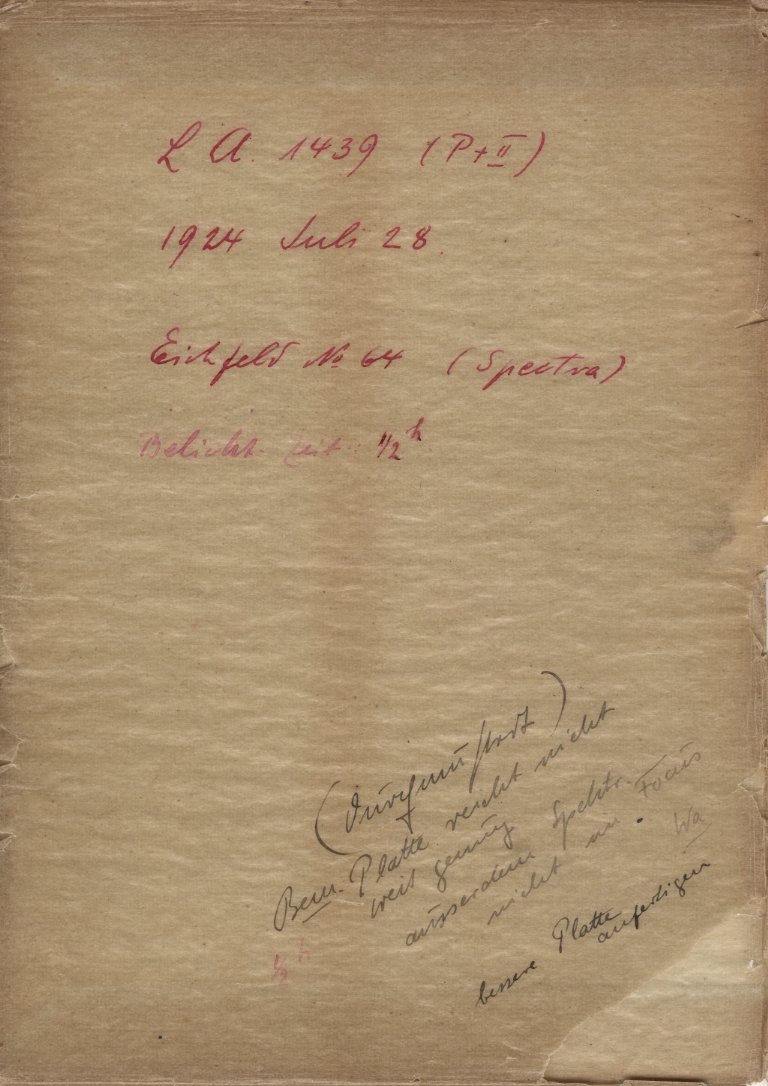 L A. 1439 (P+II)
1924 Juli 28.
Eichfeld No 64 (Spectra)
Belicht. zeit: 1/2 h
(durchmustert)
Bem. Platte reicht nicht
weit genug
ausserdem Spektr.
nicht im Focus
Wa
bessere Platte
anfertigen
1/2 h